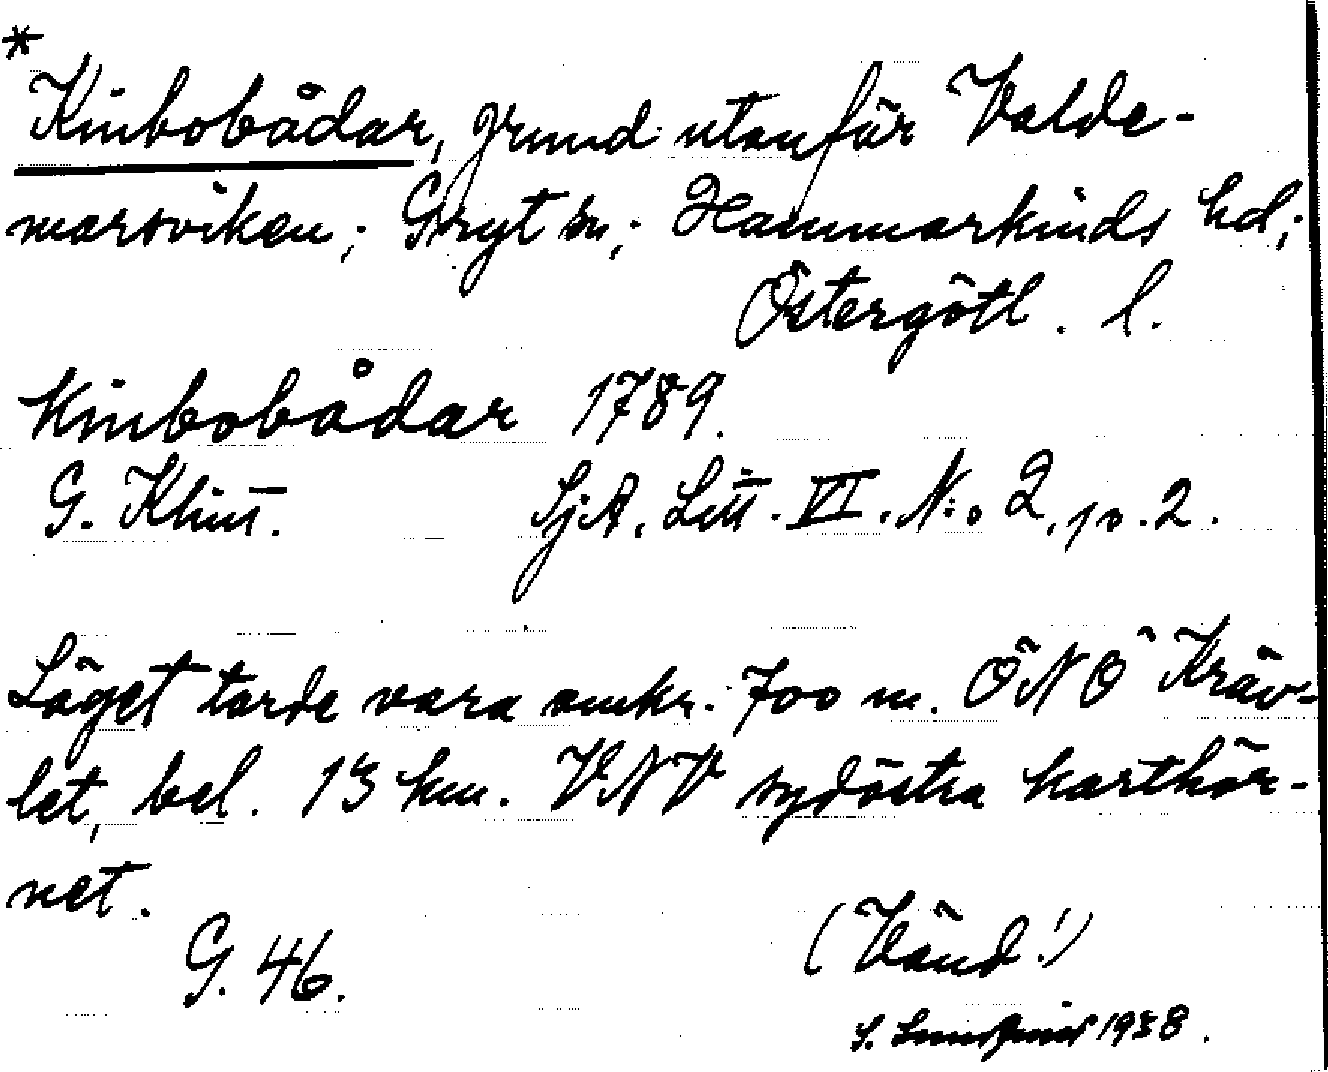 *
Kinbobådar, grund utanför Valde-
marsviken; Gryt sn; Hammarkinds hd;
Östergötl. l.
Kinbobådar 1789.
G. Klint. SjA. Litt. VI. N:o 2, p. 2.
Läget torde vara omkr. 700 m. ÖNÖ Kräv-
let, bel. 13 km. VNV sydöstra karthör-
net.
G. 46. (Vänd!)
S. Lundqvist 1938.